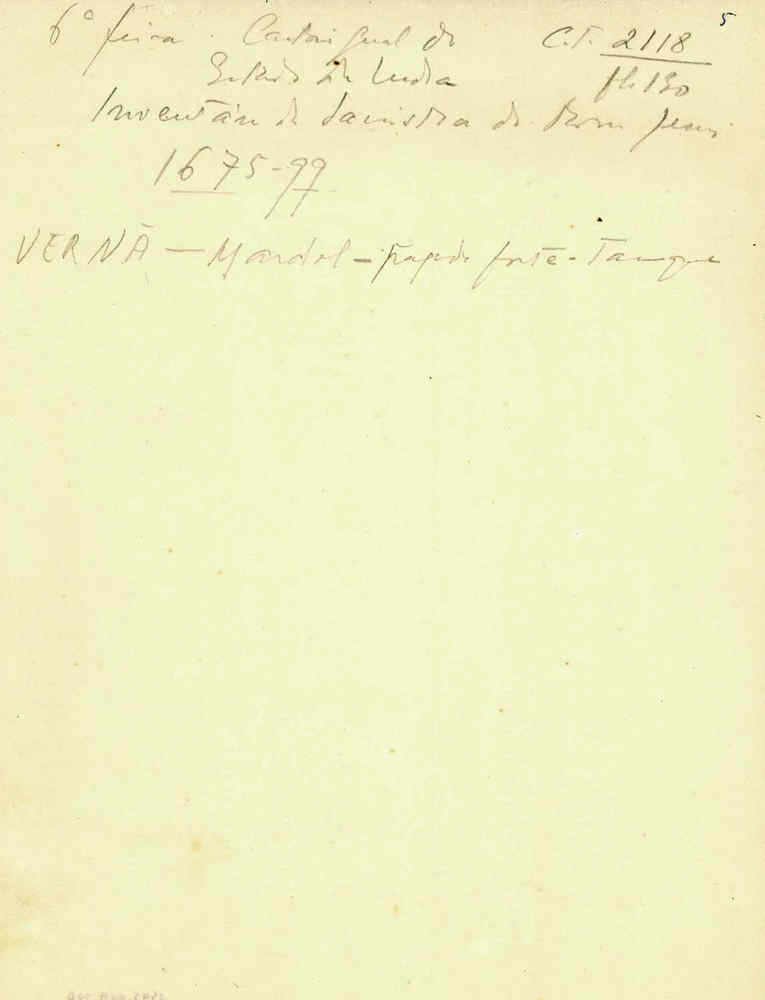 5
6ª feira. Cartório Geral do C.T. 2118
Estado da India fl. 130
Inventário da Sacristia do Bom Jesus
1675-99
VERNÃ — Mardol — pagode forte - Tanque